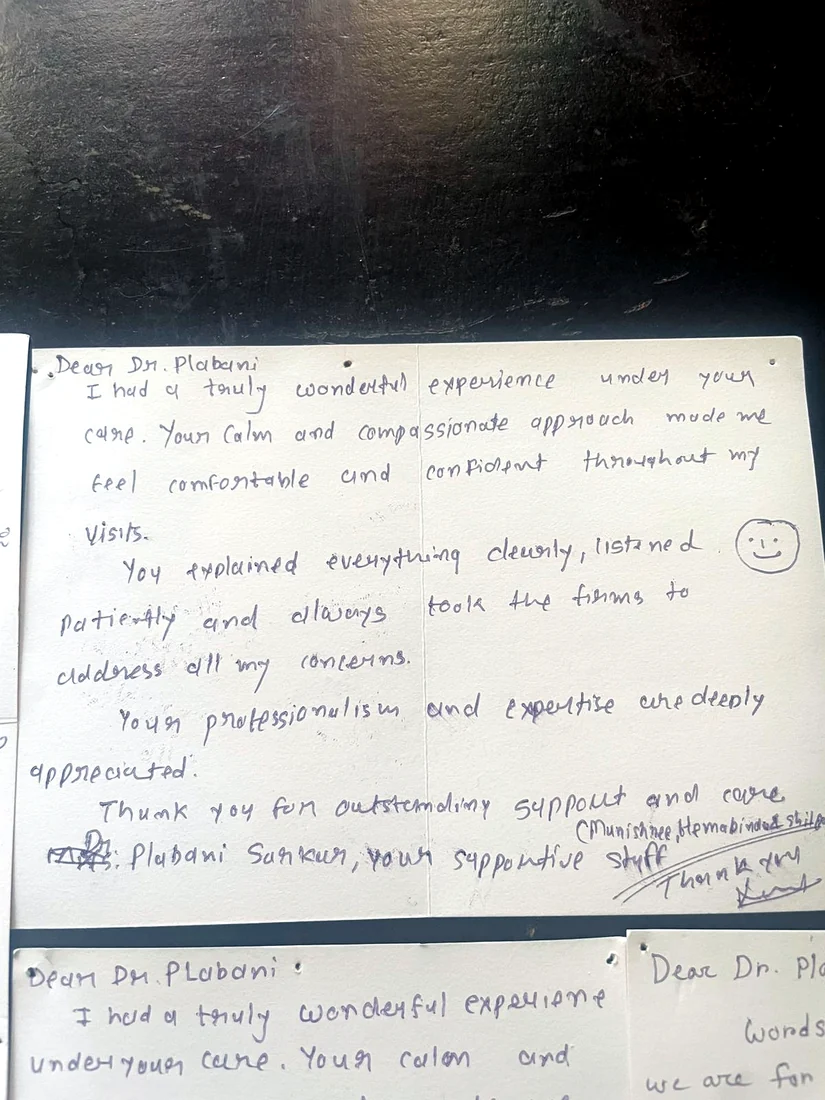 Dear Dr. Plabani
I had a truly wonderful experience under your
care. Your Calm and compassionate approach made me
feel comfortable and confident throughout my
visits.
You explained everything clearly, listened
patiently and always took the tirms to
address all my concerns.
Your professionalism and expertise are deeply
appreciated.
Thank you for outstanding support and care
(Munishree, Hemabindad Shilpa
Dr. Plabani Sarkar, your supportive staff
Thank you
Dear Dr. PLabani
I had a truly wonderful experiene
under your care. Your calm and
Dear Dr. Pla
words
we are for